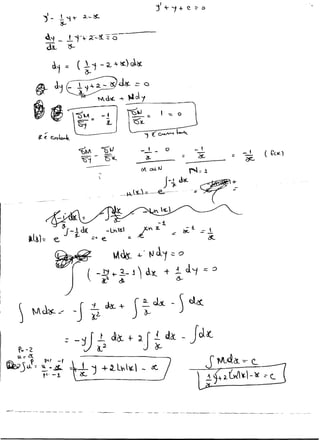 y' + y + c = 0
y' - 1/x y + 2 - x
dy/dx - 1/x y + 2 - x = 0
dy = (1/x y - 2 + x) dx
dy (- 1/x y + 2 - x) dx = 0
M dx + N dy
δM/δy = -1/x
δN/δx = 1 = 0
δM/δy - δN/δx
-1/x - 0
-1/x
= -1/x (f(x))
M o N
N = 1
u(x) = e^∫-1/x dx
u(x) = e^∫-1/x dx = e^-ln|x| = e^ln x^-1 = x^-1 = 1/x
M dx + N dy = 0
(-y/x² + 2/x - 1) dx + 1/x dy = 0
∫ M dx = -∫ y/x² dx + ∫ 2/x dx - ∫ dx
= -y ∫ 1/x² dx + 2 ∫ 1/x dx - ∫ dx
P = -2
u = x
1/x y + 2 ln|x| - x
∫ M dx = c
1/x y + 2 ln|x| - x = c